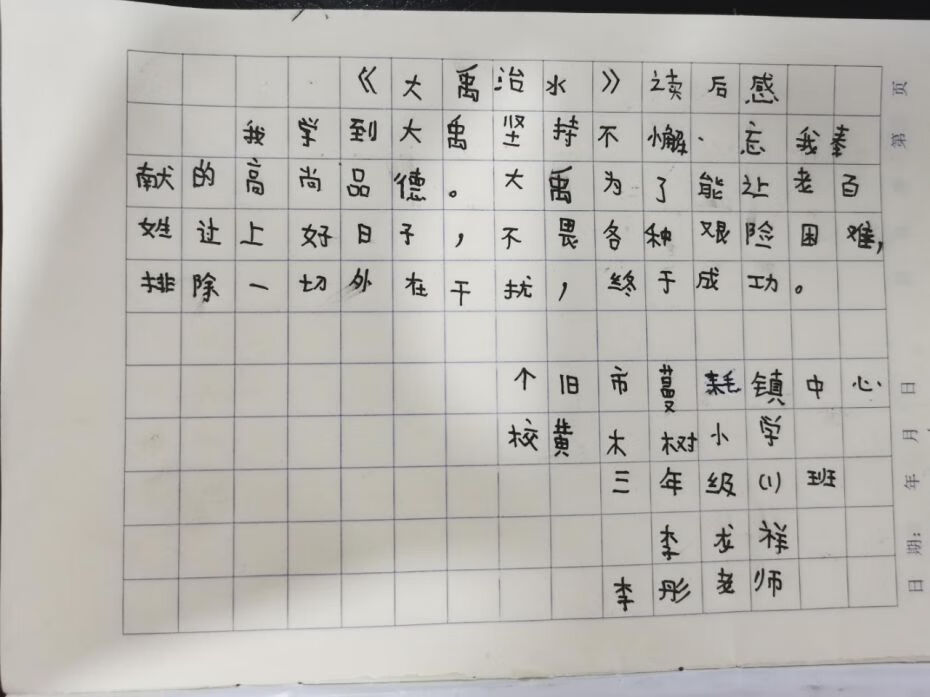 《大禹治水》读后感
我学到大禹坚持不懈、忘我奉
献的高尚品德。大禹为了能让老百
姓过上好日子，不畏各种艰险困难，
排除一切外在干扰，终于成功。
个旧市蔓耗镇中心
校黄木树小学
三年级(1)班
李龙祥
李彤老师
第 页
日期： 年 月 日